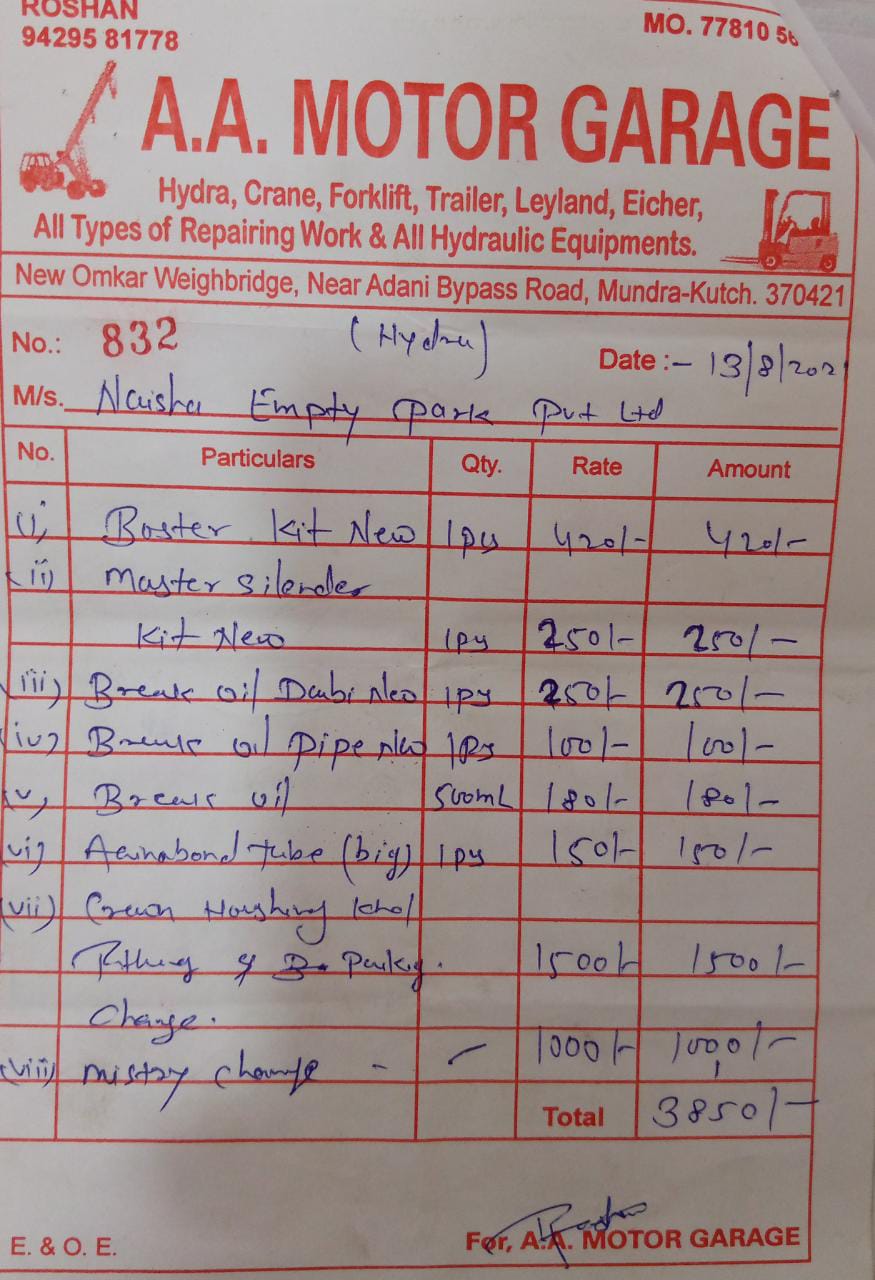 ROSHAN
94295 81778
MO. 77810 56
A.A. MOTOR GARAGE
Hydra, Crane, Forklift, Trailer, Leyland, Eicher,
All Types of Repairing Work & All Hydraulic Equipments.
New Omkar Weighbridge, Near Adani Bypass Road, Mundra-Kutch. 370421
No.: 832 (Hydra) Date :- 13/8/202
M/s. Naisha Empty Park Pvt Ltd
No. Particulars Qty. Rate Amount
(i) Boster Kit New 1py 420/- 420/-
(ii) Master Silender
Kit New 1py 250/- 250/-
(iii) Break oil Dabi New 1py 250/- 250/-
(iv) Break oil Pipe New 1Py 100/- 100/-
(v) Break oil 500mL 180/- 180/-
(vi) tube (big) 1py 150/- 150/-
(vii) Crown Houshing khol
1500/- 1500/-
Change.
(viii) mistry charge - 1000/- 1000/-
Total 3850/-
E. & O. E.
For, A.A. MOTOR GARAGE